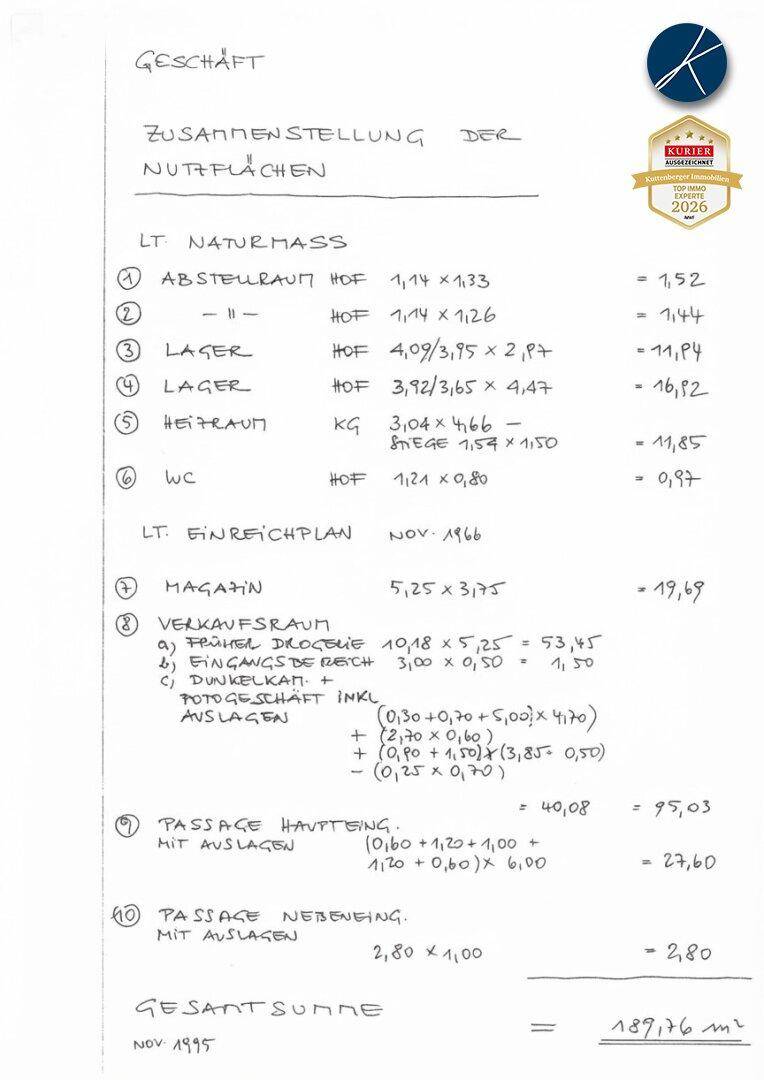 GESCHÄFT
KURIER
AUSGEZEICHNET
Kuttenberger Immobilien
TOP IMMO
EXPERTE
2026
ZUSAMMENSTELLUNG DER
NUTZFLÄCHEN
LT. NATURMASS
① ABSTELLRAUM HOF 1,14 × 1,33 = 1,52
② — " — HOF 1,14 × 1,26 = 1,44
③ LAGER HOF 4,09/3,95 × 2,97 = 11,94
④ LAGER HOF 3,92/3,65 × 4,47 = 16,92
⑤ HEIZRAUM KG 3,04 × 4,66 —
STIEGE 1,54 × 1,50 = 11,85
⑥ WC HOF 1,21 × 0,80 = 0,97
LT. EINREICHPLAN NOV. 1966
⑦ MAGAZIN 5,25 × 3,75 = 19,69
⑧ VERKAUFSRAUM
a) FRÜHER DROGERIE 10,18 × 5,25 = 53,45
b) EINGANGSBEREICH 3,00 × 0,50 = 1,50
c) DUNKELKAM. +
FOTOGESCHÄFT INKL
AUSLAGEN (0,30 + 0,70 + 5,00) × 4,70)
+ (2,70 × 0,60)
+ (0,90 + 1,50) × (3,85 - 0,50)
— (0,25 × 0,70)
= 40,08 = 95,03
⑨ PASSAGE HAUPTEING.
MIT AUSLAGEN (0,60 + 1,20 + 1,00 +
1,20 + 0,60) × 6,00 = 27,60
⑩ PASSAGE NEBENEING.
MIT AUSLAGEN
2,80 × 1,00 = 2,80
GESAMTSUMME = 189,76 m²
NOV. 1995